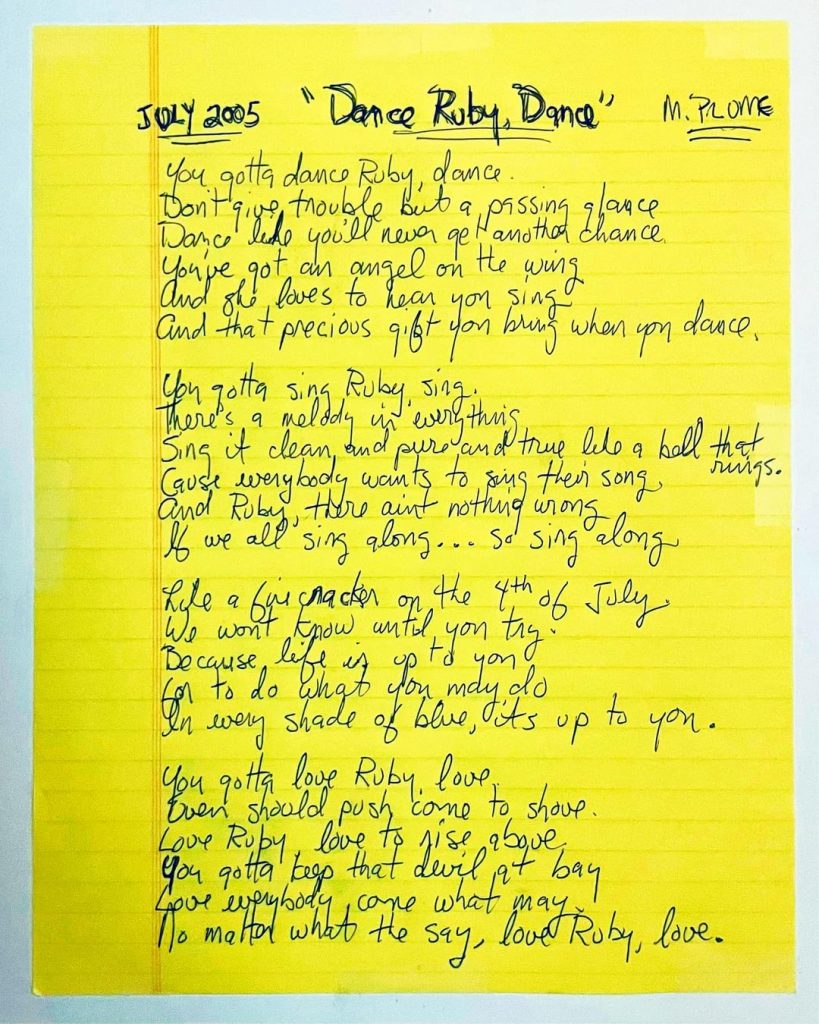 JULY 2005 "Dance Ruby, Dance" M. PROME
You gotta dance Ruby, dance.
Don't give trouble but a passing glance
Dance like you'll never get another chance.
You've got an angel on the wing
And she loves to hear you sing
And that precious gift you bring when you dance.
You gotta sing Ruby, sing.
There's a melody in everything
Sing it clean and pure and true like a bell that rings.
Cause everybody wants to sing their song
And Ruby, there aint nothing wrong
If we all sing along... so sing along
Like a firecracker on the 4th of July.
We wont know until you try.
Because life is up to you
For to do what you may do
In every shade of blue, its up to you.
You gotta love Ruby, love.
Even should push come to shove.
Love Ruby, love to rise above
You gotta keep that devil at bay
Love everybody, come what may
No matter what the say, love Ruby, love.